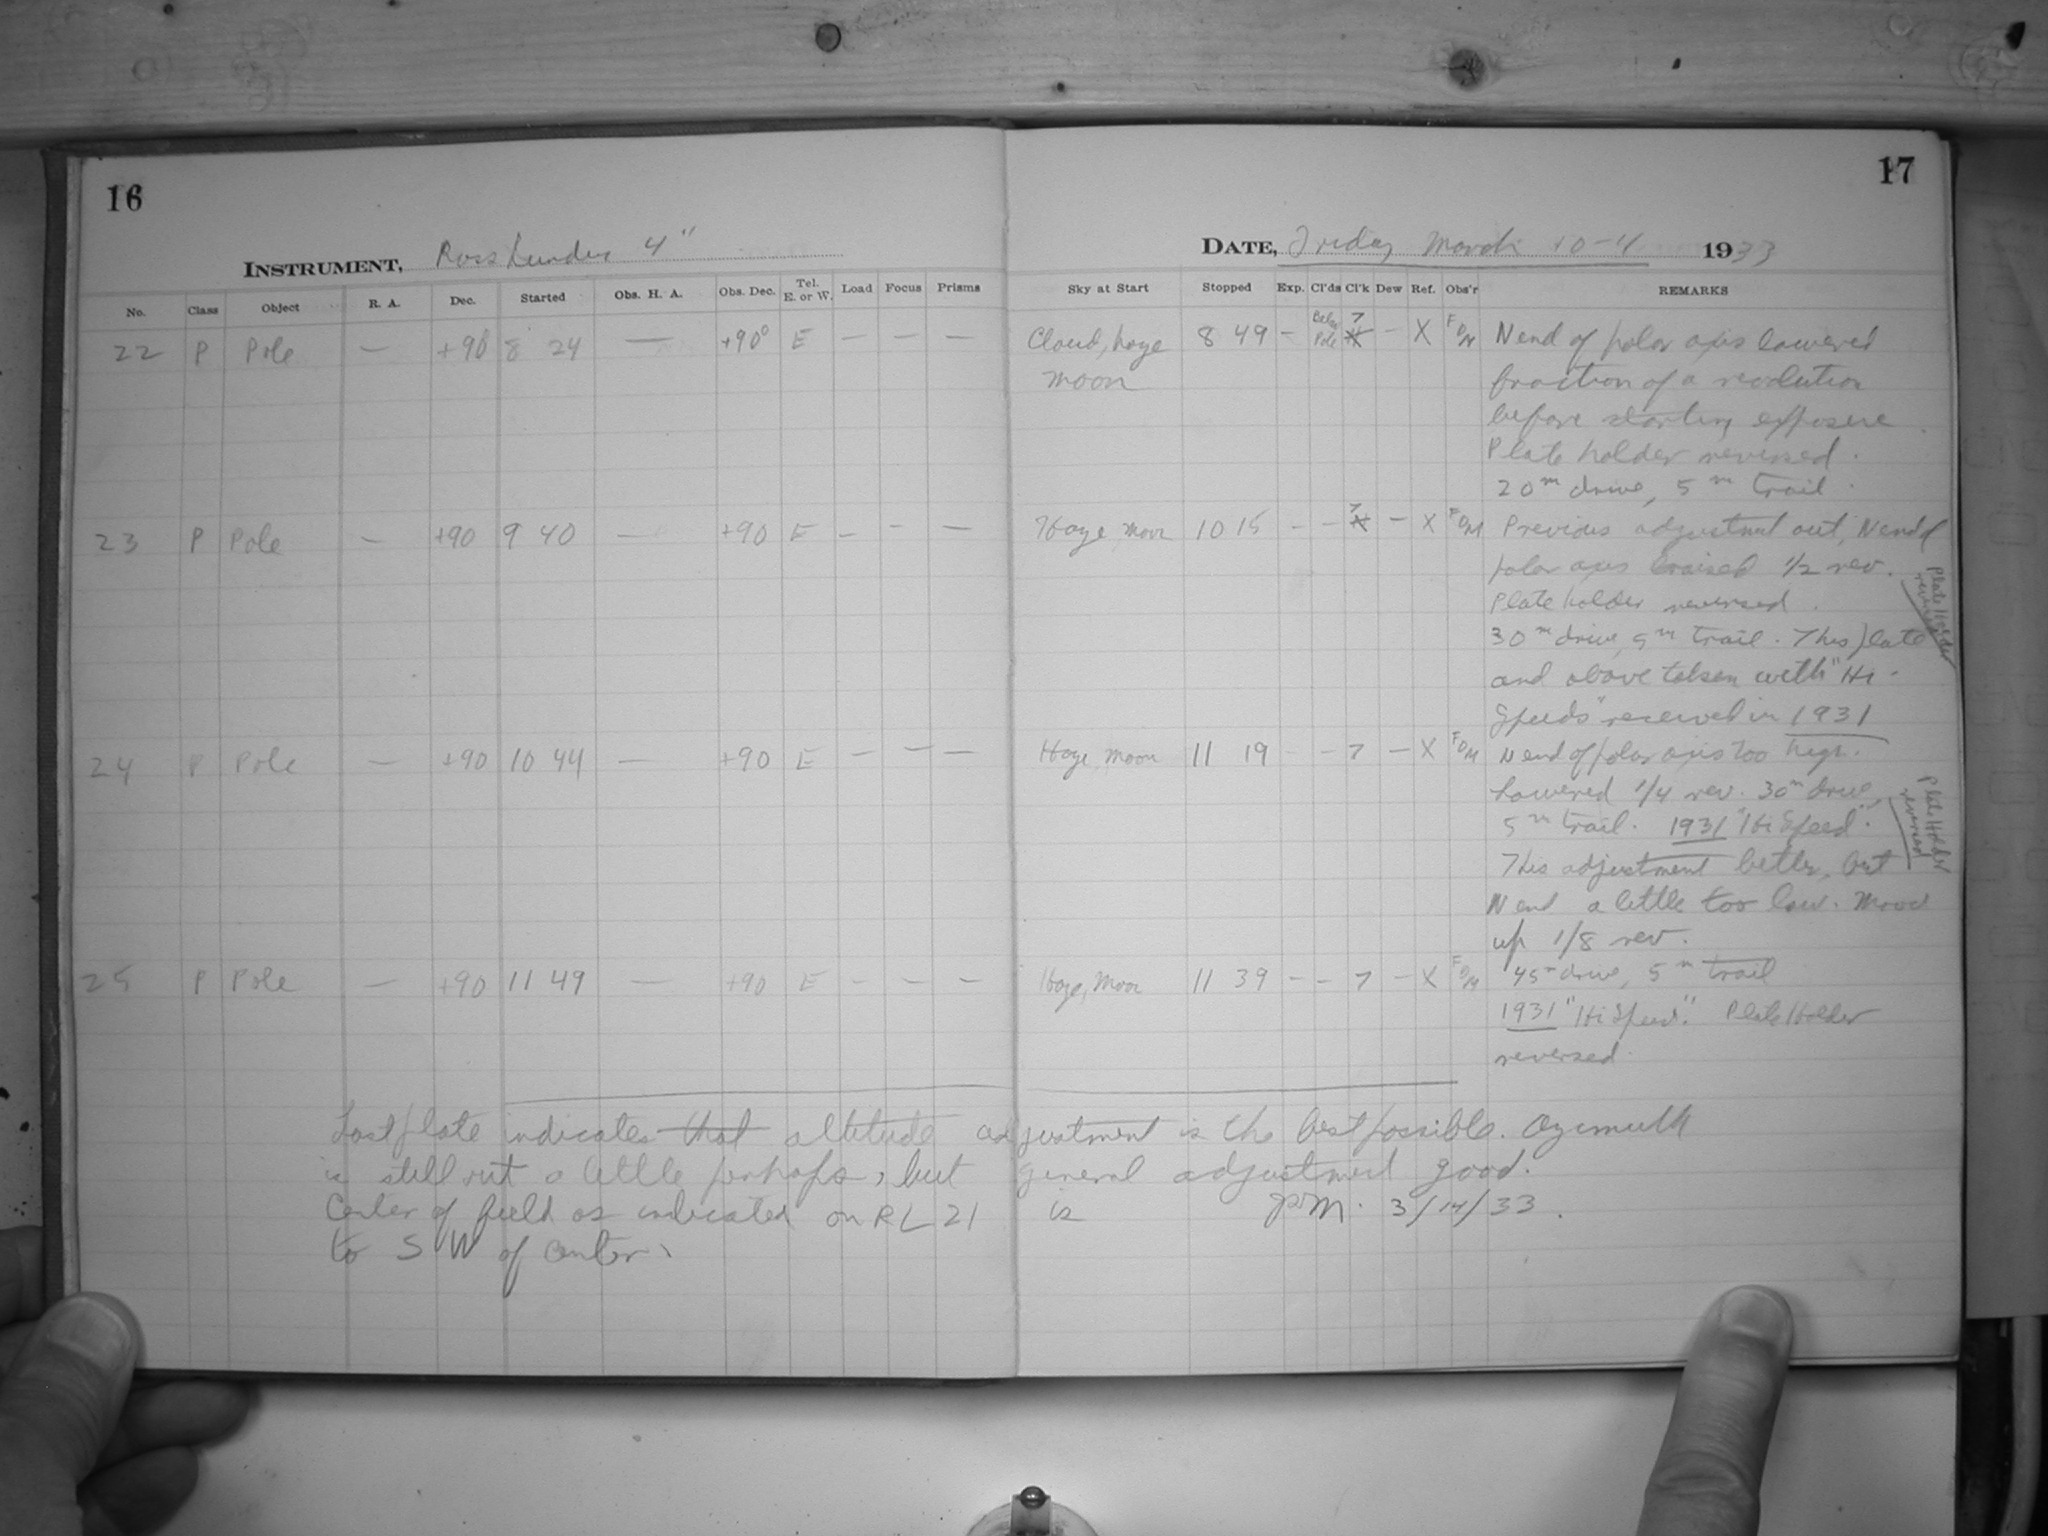 16
17
INSTRUMENT, Ross Lundin 4"
DATE, Friday March 10-11 1933
No. Class Object R. A. Dec. Started Obs. H. A. Obs. Dec. Tel. E. or W. Load Focus Prisms Sky at Start Stopped Exp. Cl'ds Cl'k Dew Ref. Obs'r REMARKS
22 P Pole — +90° 8 24 — +90° E — — — Cloud, haze 8 49 — Pole 7 — X N end of polar axis lowered
moon fraction of a revolution
before starting exposure.
Plate holder reversed.
20m drive, 5m trail.
23 P Pole — +90 9 40 — +90 E — — — Haze, moon 10 15 — — 7 — X Previous adjustment out, N end of
polar axis raised 1/2 rev.
Plate holder reversed.
30m drive, 5m trail. This plate
and above taken with "Hi-
Speeds" received in 1931
Plate Holder
reversed
24 P Pole — +90 10 44 — +90 E — — — Haze, moon 11 19 — — 7 — X N end of polar axis too high.
Lowered 1/4 rev. 30m drive,
5m trail. 1931 "Hi Speed".
This adjustment better, but
N end a little too low. Moved
up 1/8 rev.
Plate Holder
reversed
25 P Pole — +90 11 49 — +90 E — — — Haze, Moon 11 39 — — 7 — X 45m drive, 5m trail
1931 "Hi Speed". Plate Holder
reversed.
Last plate indicates that altitude adjustment is the best possible. Azimuth
is still out a little perhaps, but general adjustment good.
Center of field as indicated on RL 21 is
3/14/33.
to SW of center.